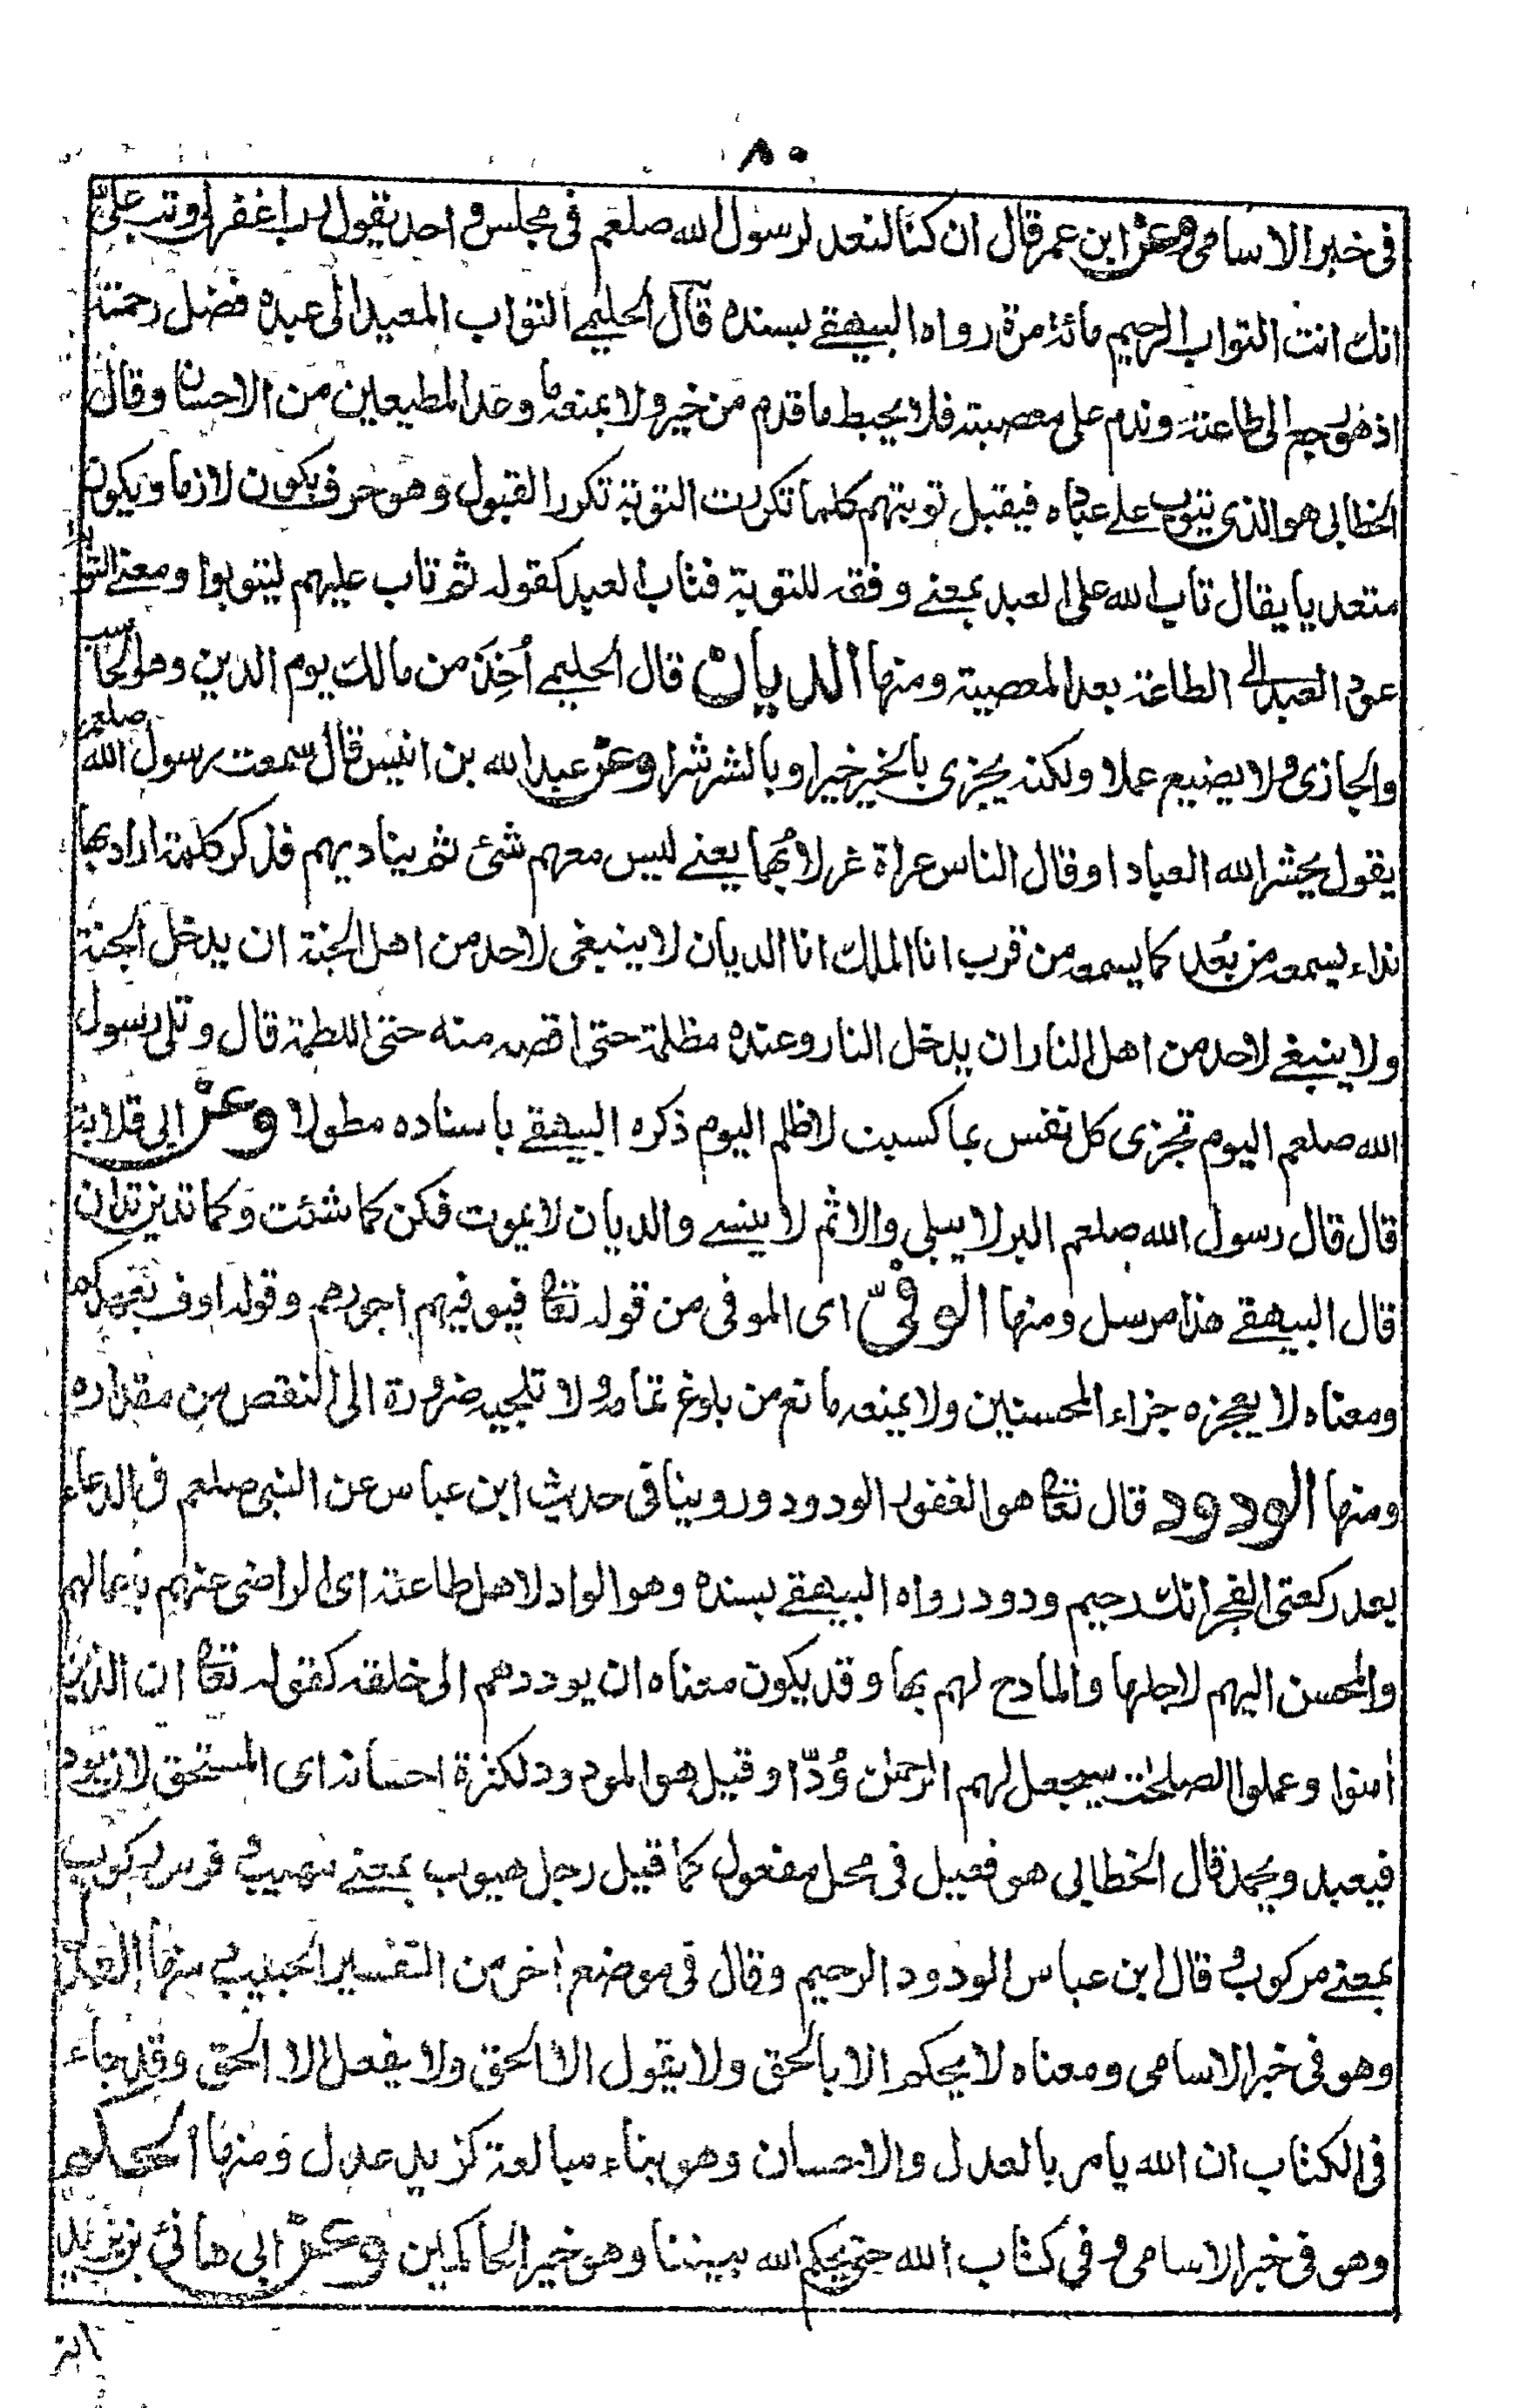 ٨٠
فى خبر الاسامى وعن ابن عمر قال ان كنا لنعد لرسول الله صلعم فى مجلس واحد يقول رب اغفر لى وتب على
انك انت التواب الرحيم مائة مرة رواه البيهقے بسنده قال الحليمے التواب المعيد الى عبده فضل رحمته
اذ هو رجع الى طاعته وندم على معصيته فلا يحبط ما قدم من خير ولا يمنعه ما وعد المطيعين من الاحسان وقال
الخطابى هو الذى يتوب على عباده فيقبل توبتهم كلما تكررت التوبة تكرر القبول وهو حرف يكون لازما ويكون
متعديا يقال تاب الله على العبد بمعنے وفقه للتوبة فتاب العبد كقوله ثم تاب عليهم ليتوبوا ومعنے التوبة
عود العبد الے الطاعة بعد المعصية ومنها الديان قال الحليمے أُخِذَ من مالك يوم الدين وهو الحاسب
والمجازى ولا يضيع عملا ولكنه يجزى بالخير خيرا وبالشر شرا وعن عبد الله بن انيس قال سمعت رسول الله صلعم
يقول يحشر الله العباد او قال الناس عراة غرلا بُهما يعنے ليس معهم شئ ثم يناديهم فذكر كلمة اراد بها
نداء يسمعه من بُعد كما يسمعه من قرب انا الملك انا الديان لا ينبغى لاحد من اهل الجنة ان يدخل الجنة
ولا ينبغے لاحد من اهل النار ان يدخل النار وعنده مظلمة حتى اقصه منه حتى اللطمة قال وتلى رسول
الله صلعم اليوم تجزى كل نفس بما كسبت لا ظلم اليوم ذكره البيهقے باسناده مطولا وعن ابى قلابة
قال قال رسول الله صلعم البر لا يبلى والاثم لا ينسے والديان لا يموت فكن كما شئت وكما تدين تدان
قال البيهقے هذا مرسل ومنها الوفىّ اى الموفى من قوله تعا فيوفيهم اجورهم وقوله اوف بعهدكم
ومعناه لا يعجزه جزاء المحسنين ولا يمنعه مانع من بلوغ تمامه ولا تلجيه ضرورة الى النقص من مقداره
ومنها الودود قال تعا هو الغفور الودود وروينا فى حديث ابن عباس عن النبى صلعم فى الدعاء
بعد ركعتى الفجر انك رحيم ودود رواه البيهقے بسنده وهو الواد لاهل طاعته اى الراضى عنهم باعمالهم
والمحسن اليهم لاجلها والمادح لهم بها وقد يكون معناه ان يوددهم الى خلقه كقوله تعا ان الذين
امنوا وعملوا الصلحت سيجعل لهم الرحمن وُدّا وقيل هو المودود لكثرة احسانه اى المستحق لان يود
فيعبد ويحمد قال الخطابى هو فعيل فى محل مفعول كما قيل رجل هيوب بمعنے مهيب وفرس ركوب
بمعنے مركوب وقال ابن عباس الودود الرحيم وقال فى موضع اخر من التفسير الحبيب ومنها العدل
وهو فى خبر الاسامى ومعناه لا يحكم الا بالحق ولا يقول الا الحق ولا يفعل الا الحق وقد جاء
فى الكتاب ان الله يامر بالعدل والاحسان وهو بناء مبالغة كزيد عدل ومنها الحكم
وهو فى خبر الاسامى وفى كتاب الله حتى يحكم الله بيننا وهو خير الحاكمين وعن ابى هانئ بن يزيد